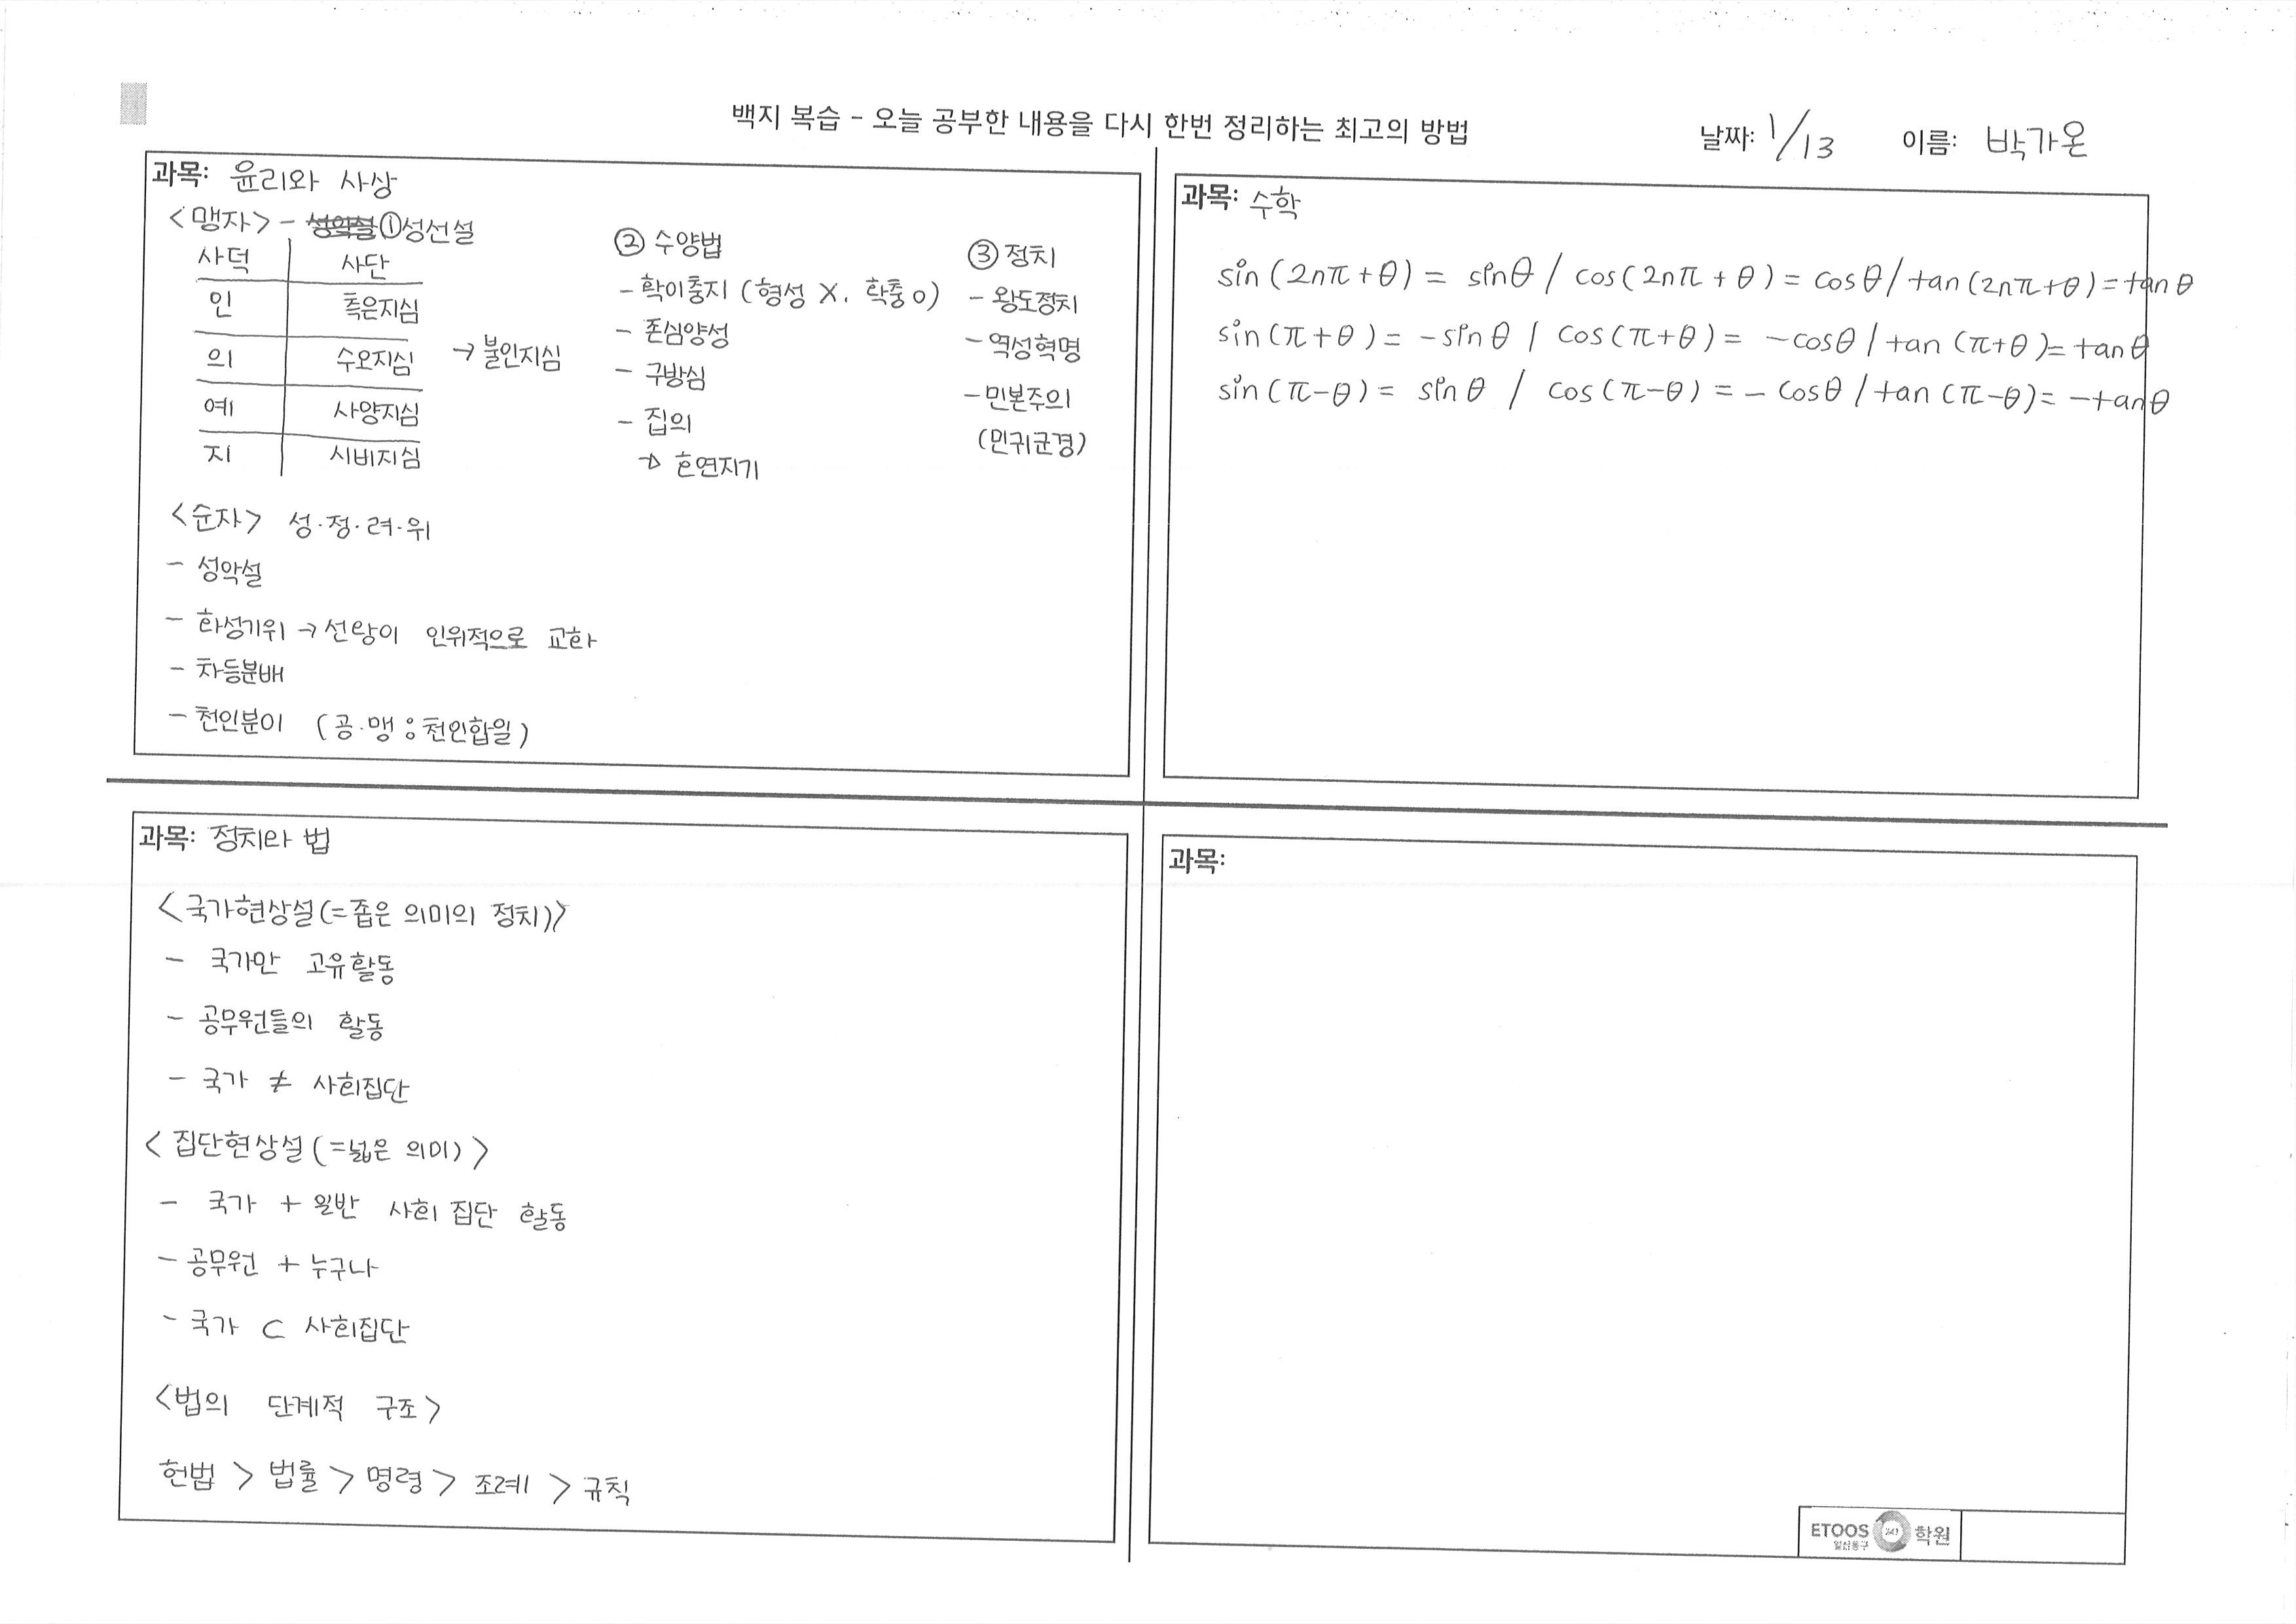 백지 복습 - 오늘 공부한 내용을 다시 한번 정리하는 최고의 방법
날짜: 1/13 이름: 박가온
과목: 윤리와 사상
<맹자> - ①성선설
사덕 사단
인 측은지심
의 수오지심 → 불인지심
예 사양지심
지 시비지심
② 수양법
- 확이충지 (형성 X. 확충 O)
- 존심양성
- 구방심
- 집의
→ 호연지기
③ 정치
- 왕도정치
- 역성혁명
- 민본주의
(민귀군경)
<순자> 성·정·려·위
- 성악설
- 화성기위 → 선왕이 인위적으로 교화
- 차등분배
- 천인분이 (공·맹 : 천인합일)
과목: 수학
sin(2nπ+θ) = sinθ / cos(2nπ+θ) = cosθ / tan(2nπ+θ) = tanθ
sin(π+θ) = -sinθ / cos(π+θ) = -cosθ / tan(π+θ) = tanθ
sin(π-θ) = sinθ / cos(π-θ) = -cosθ / tan(π-θ) = -tanθ
과목: 정치와 법
<국가현상설(=좁은 의미의 정치)>
- 국가만 고유활동
- 공무원들의 활동
- 국가 ≠ 사회집단
<집단현상설(=넓은 의미)>
- 국가 + 일반 사회 집단 활동
- 공무원 + 누구나
- 국가 ⊂ 사회집단
<법의 단계적 구조>
헌법 > 법률 > 명령 > 조례 > 규칙
과목:
ETOOS 247 학원
일산동구